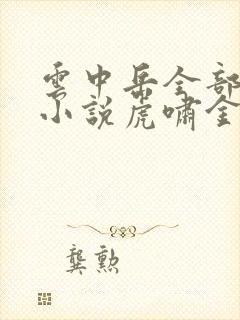 雲中岳全部
小說虎嘯金
龔勲